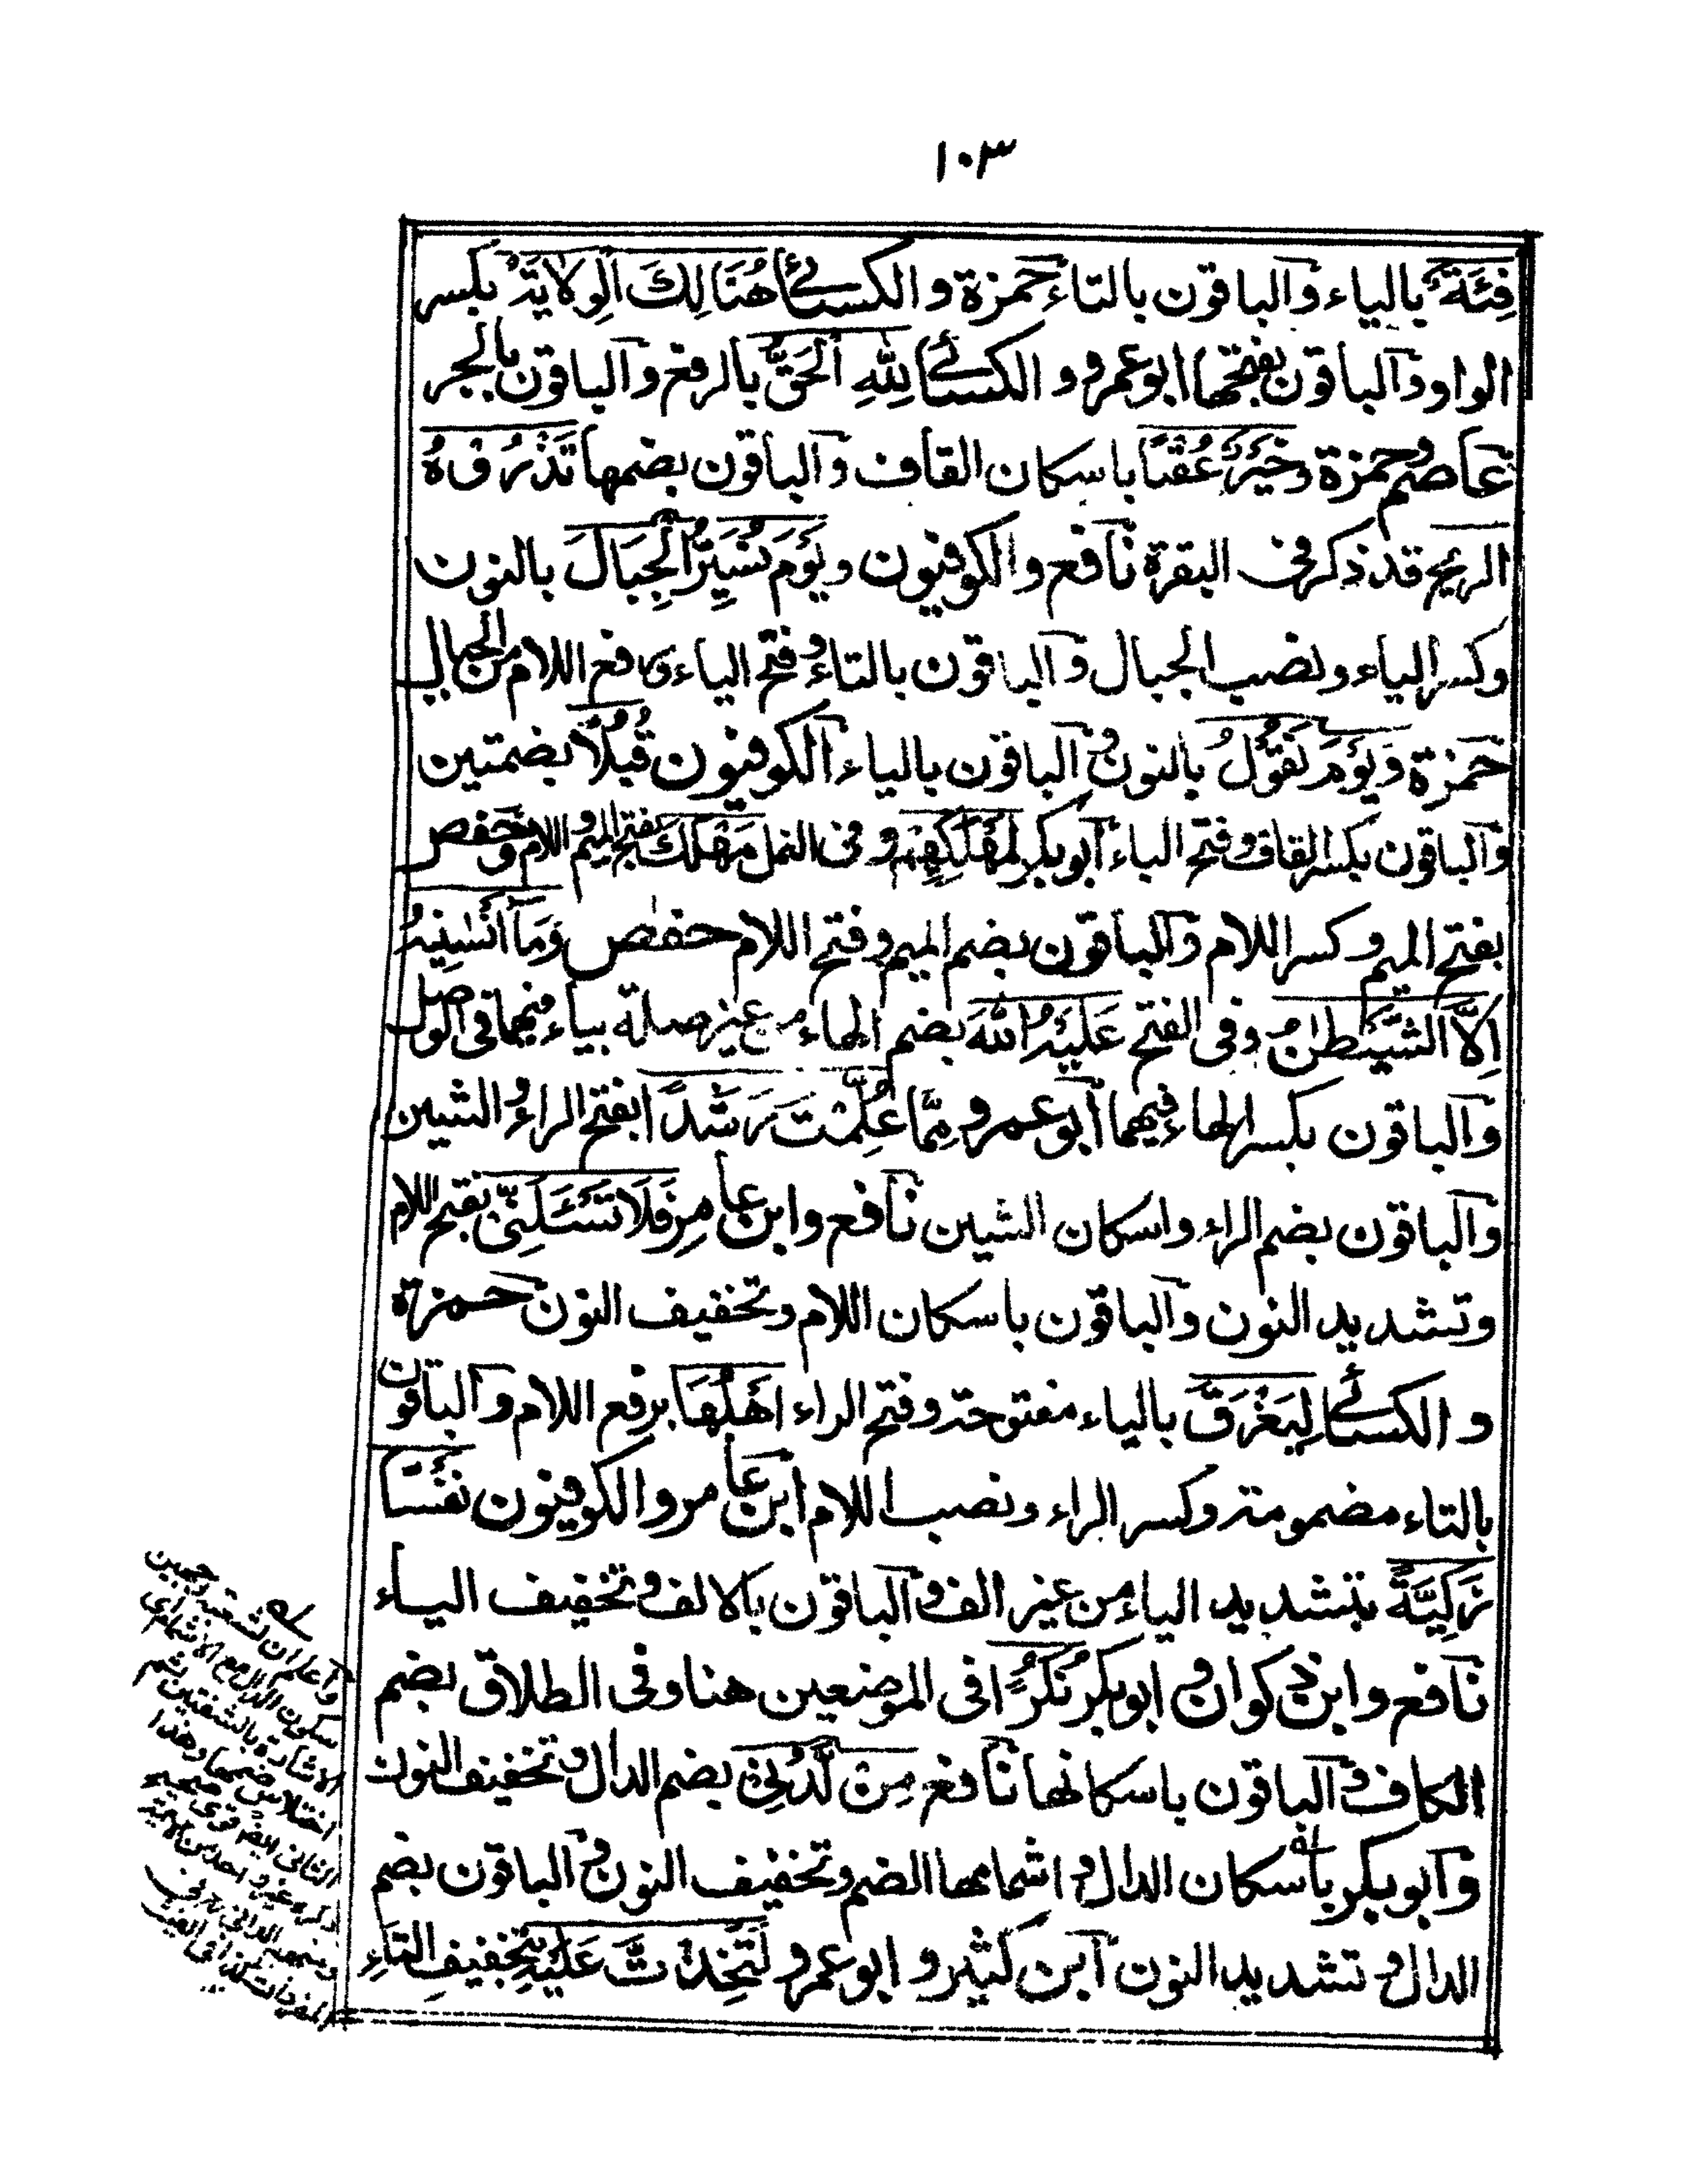 ١٠٣
فِئَةٌ بالياء والباقون بالتاء حمزة والكسائى هُنَالِكَ الْوِلَايَةُ بكسر
الواو والباقون بفتحها ابوعمرو و الكسائى لِلّٰهِ الْحَقُّ بالرفع والباقون بالجر
عاصم وحمزة وخَيْرٌ عُقْبًا باسكان القاف والباقون بضمها تَذْرُوْهُ
الريح قد ذكر فى البقرة نافع والكوفيون ويَوْمَ نُسَيِّرُ الْجِبَالَ بالنون
وكسر الياء ونصب الجبال والباقون بالتاء وفتح الياء ورفع اللام من الجبال
حمزة وَيَوْمَ نَقُوْلُ بالنون والباقون بالياء الكوفيون قُبُلًا بضمتين
والباقون بكسر القاف وفتح الباء ابوبكر لِمَهْلَكِهِمْ وفى النمل مَهْلَكَ بفتح الميم واللام وحفص
بفتح الميم وكسر اللام والباقون بضم الميم وفتح اللام حفص وَمَآ اَنْسٰىنِيْهُ
اِلَّا الشَّيْطٰنُ وفى الفتح عَلَيْهُ اللهَ بضم الهاء من غير صلة بياء منهما فى الوصل
والباقون بكسر الهاء فيهما ابوعمرو مِمَّا عُلِّمْتَ رَشَدًا بفتح الراء والشين
والباقون بضم الراء واسكان الشين نافع وابن عامر فَلَا تَسْئَلَنِّىْ بفتح اللام
وتشديد النون والباقون باسكان اللام وتخفيف النون حمزة
و الكسائى لِيَغْرَقَ بالياء مفتوحة وفتح الراء اَهْلُهَا برفع اللام والباقون
بالتاء مضمومة وكسر الراء ونصب اللام ابن عامر والكوفيون نَفْسًا
زَكِيَّةً بتشديد الياء من غير الف والباقون بالالف وتخفيف الياء
نافع وابن ذكوان وابوبكر نُكُرًا فى الموضعين هنا وفى الطلاق بضم
الكاف والباقون باسكانها نافع مِنْ لَّدُنِىْ بضم الدال وتخفيف النون
وابوبكر باسكان الدال واشمامها الضم وتخفيف النون والباقون بضم
الدال وتشديد النون ابن كثير و ابوعمرو لَتَخِذْتَّ عَلَيْهِ بتخفيف التاء
واعلم ان لشعبة وجهين
سكون الدال مع الاشمام اى
الاشارة بالشفتين ثم
اختلاس ضمها وهذا
الثانى